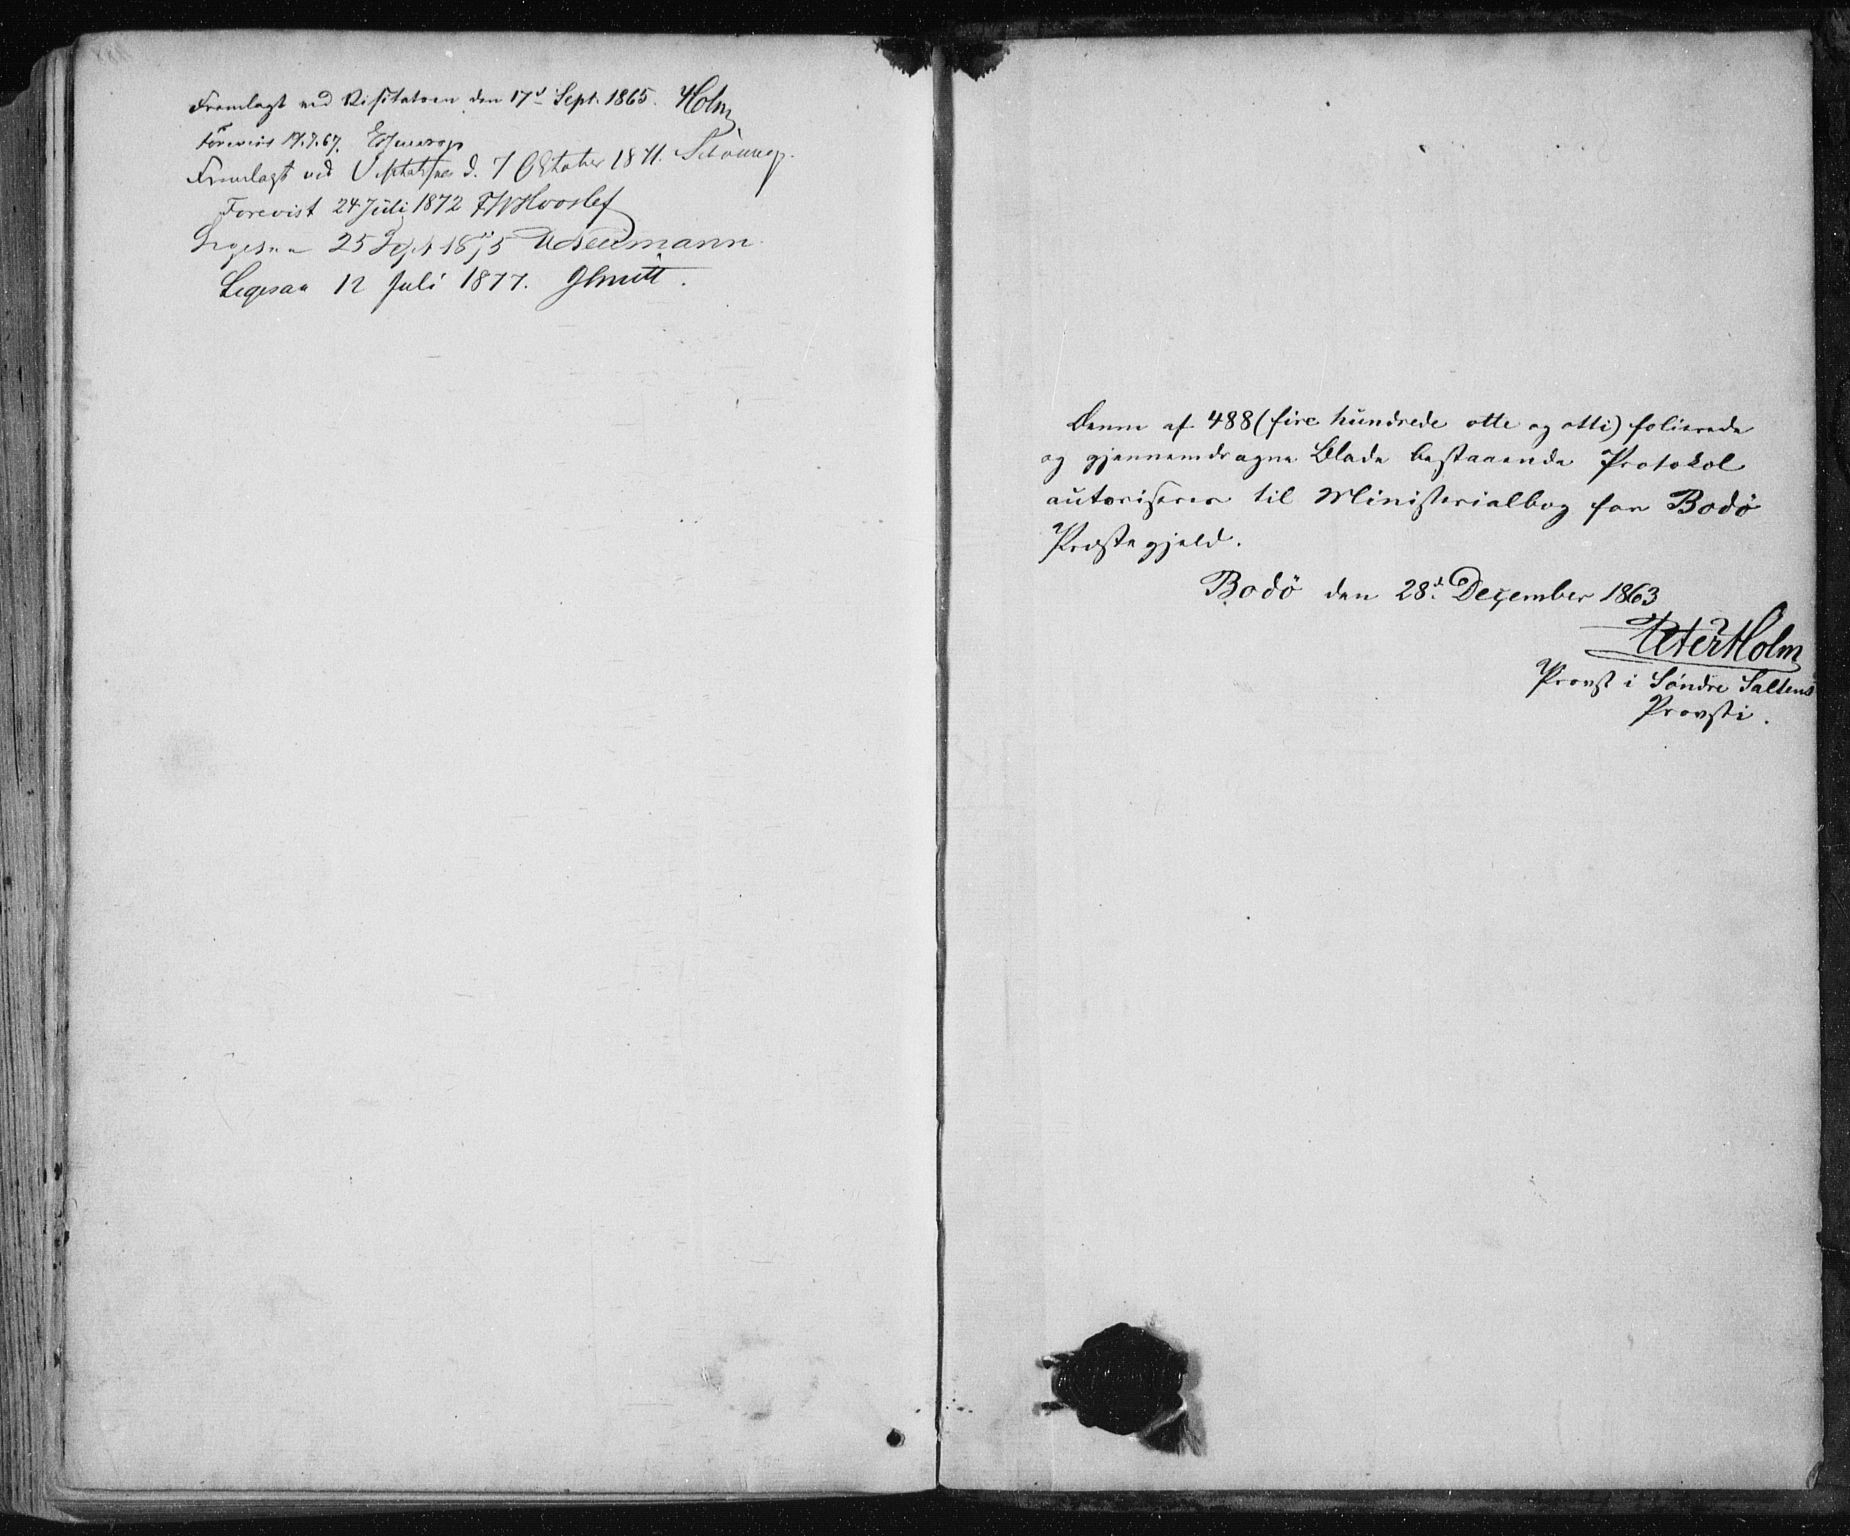 Fremlagt ved Visitatsen den 17d Sept. 1865. Holm
Forevist 17.7.67.
Fremlagt ved Visitatsen d. 7 Oktober 1871.
Forevist 24 Juli 1872 FWHvoslef
Ligesaa 25 Sept 1875
Ligesaa 12 Juli 1877. JSmitt.
Denne af 488 (fire hundrede otte og otti) folierede
og gjennemdragne Blade bestaaende Protokol
autoriseres til Ministerialbog for Bodö
Præstegjeld.
Bodö den 28d. December 1863
Peter Holm
Provst i Söndre Saltens
Provsti.